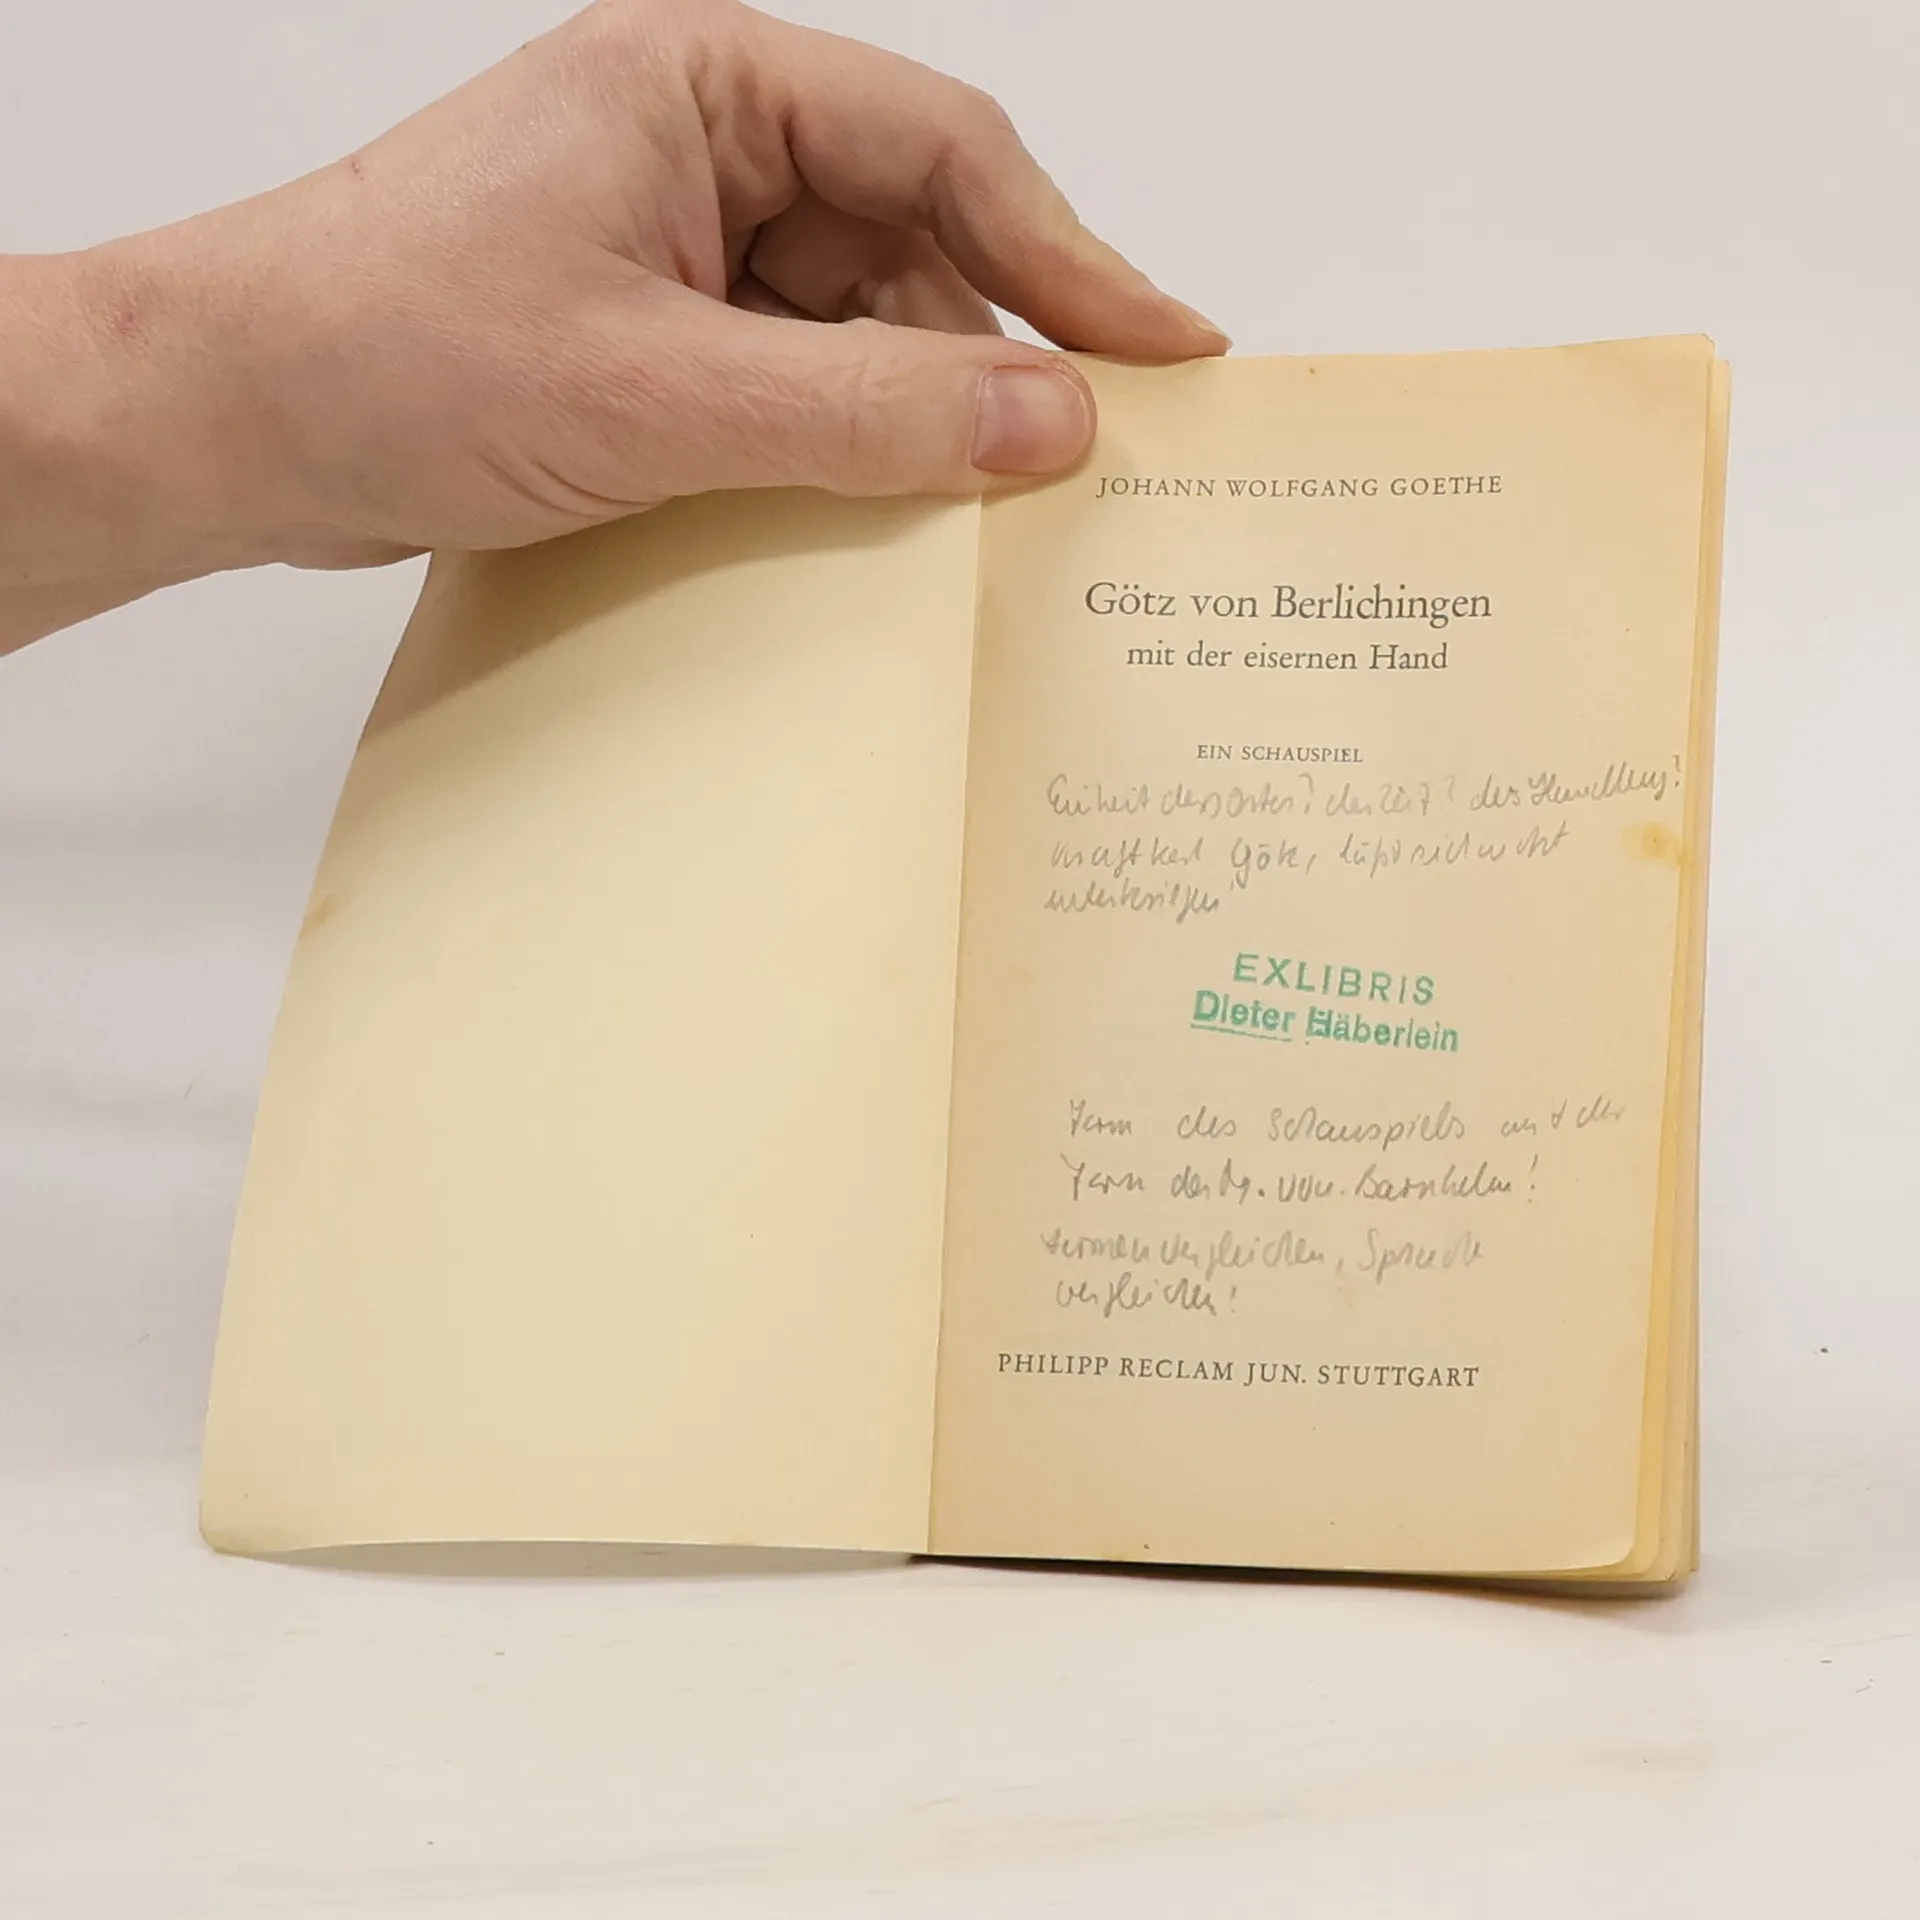 JOHANN WOLFGANG GOETHE
Götz von Berlichingen
mit der eisernen Hand
EIN SCHAUSPIEL
Einheit des Ortes? der Zeit? der Handlung?
Götz, läßt sich nicht
unterkriegen!
EXLIBRIS
Dieter Häberlein
Form des Schauspiels mit der
Form der M. von Barnhelm!
Formen vergleichen, Sprache
vergleichen!
PHILIPP RECLAM JUN. STUTTGART